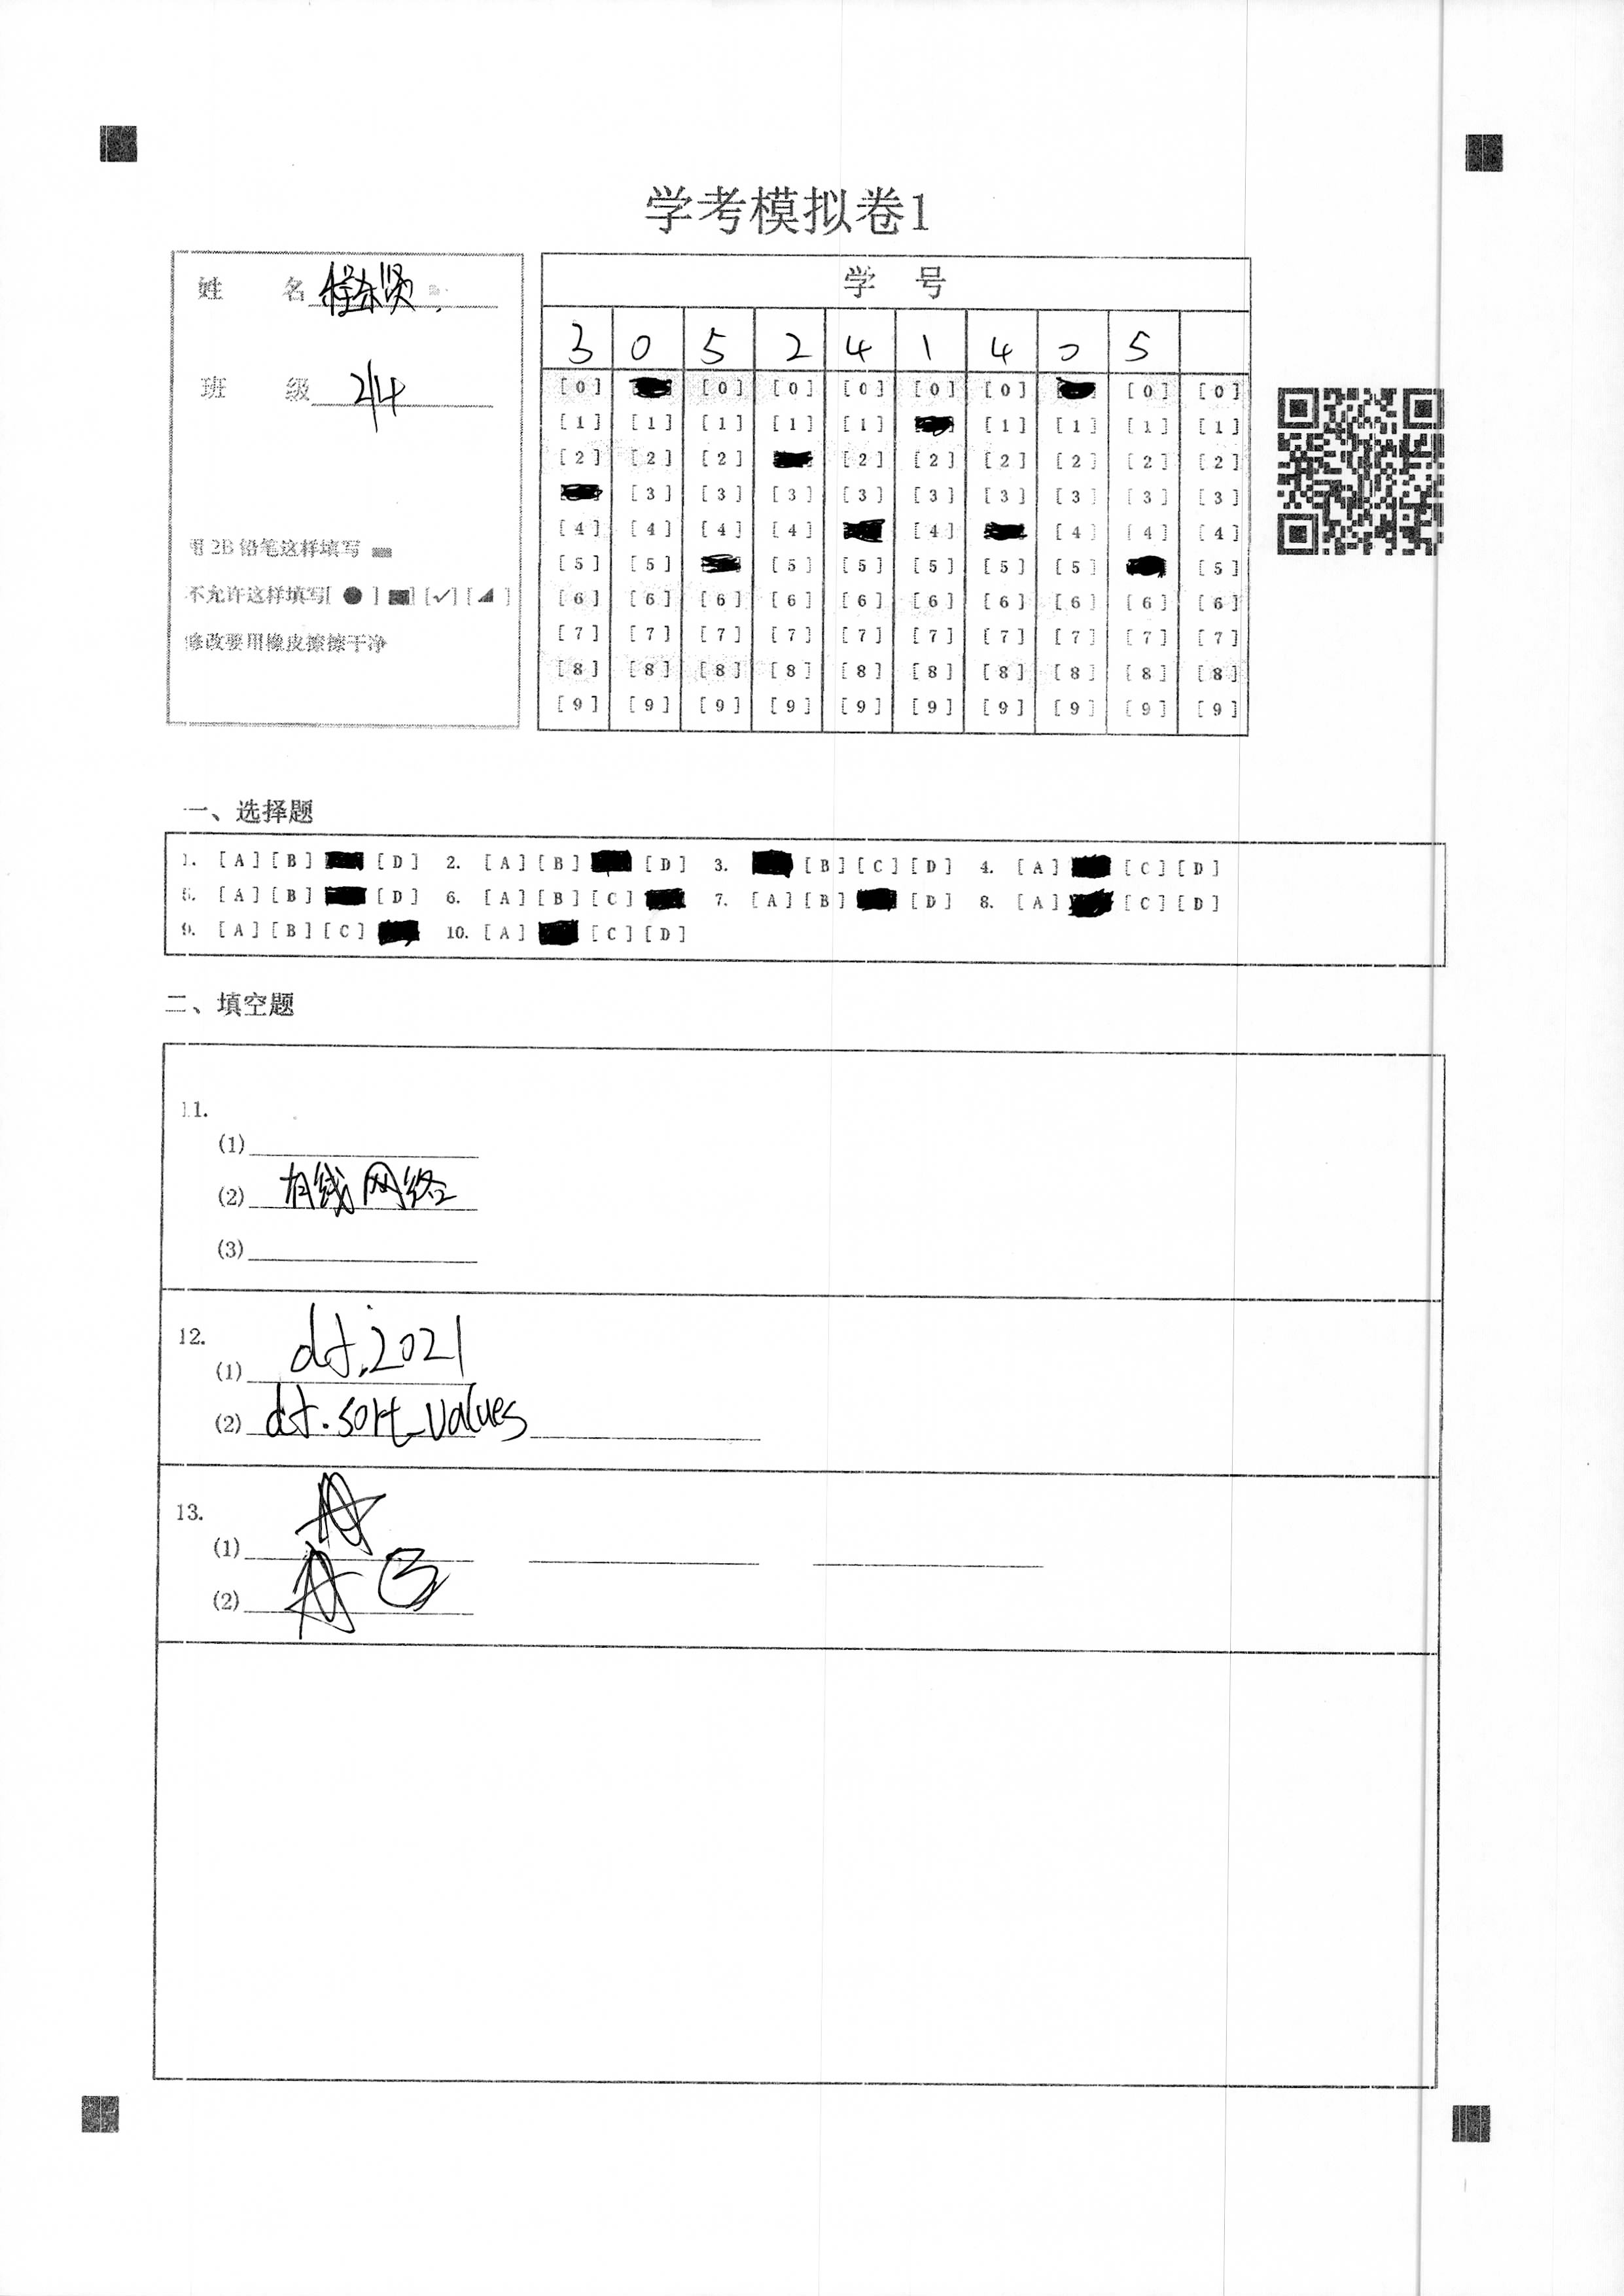 学考模拟卷1
姓 名 程东贤
班 级 214
用 2B 铅笔这样填写
不允许这样填写[ ● ] [✓] [ ]
修改要用橡皮擦擦干净
学 号
3 0 5 2 4 1 4 0 5
[0] [0] [0] [0] [0] [0] [0] [0]
[1] [1] [1] [1] [1] [1] [1] [1] [1]
[2] [2] [2] [2] [2] [2] [2] [2] [2]
[3] [3] [3] [3] [3] [3] [3] [3] [3]
[4] [4] [4] [4] [4] [4] [4] [4]
[5] [5] [5] [5] [5] [5] [5] [5]
[6] [6] [6] [6] [6] [6] [6] [6] [6] [6]
[7] [7] [7] [7] [7] [7] [7] [7] [7] [7]
[8] [8] [8] [8] [8] [8] [8] [8] [8] [8]
[9] [9] [9] [9] [9] [9] [9] [9] [9] [9]
一、选择题
1. [A] [B] [D] 2. [A] [B] [D] 3. [B] [C] [D] 4. [A] [C] [D]
5. [A] [B] [D] 6. [A] [B] [C] 7. [A] [B] [D] 8. [A] [C] [D]
9. [A] [B] [C] 10. [A] [C] [D]
二、填空题
11.
(1)
(2) 有线网络
(3)
12.
(1) df.2021
(2) df.sort_values
13.
(1)
(2)